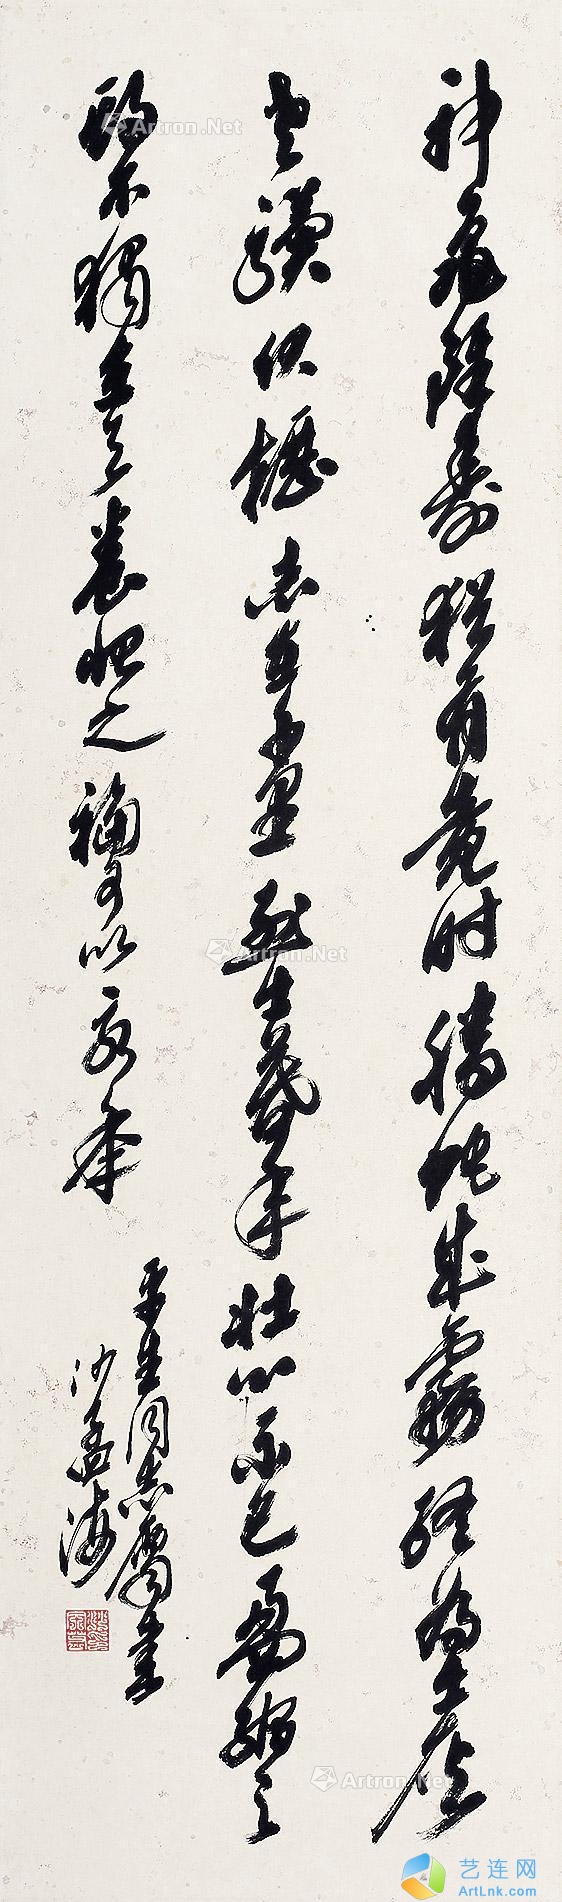 神龜雖壽猶有竟時騰蛇乘霧終為土灰
老驥伏櫪志在千里烈士暮年壯心不已盈縮之
期不獨在天養怡之福可以永年
平生同志屬書
沙孟海
Artron.Net
Artron.Net
Artron.Net
艺连网
ArtLnk.com